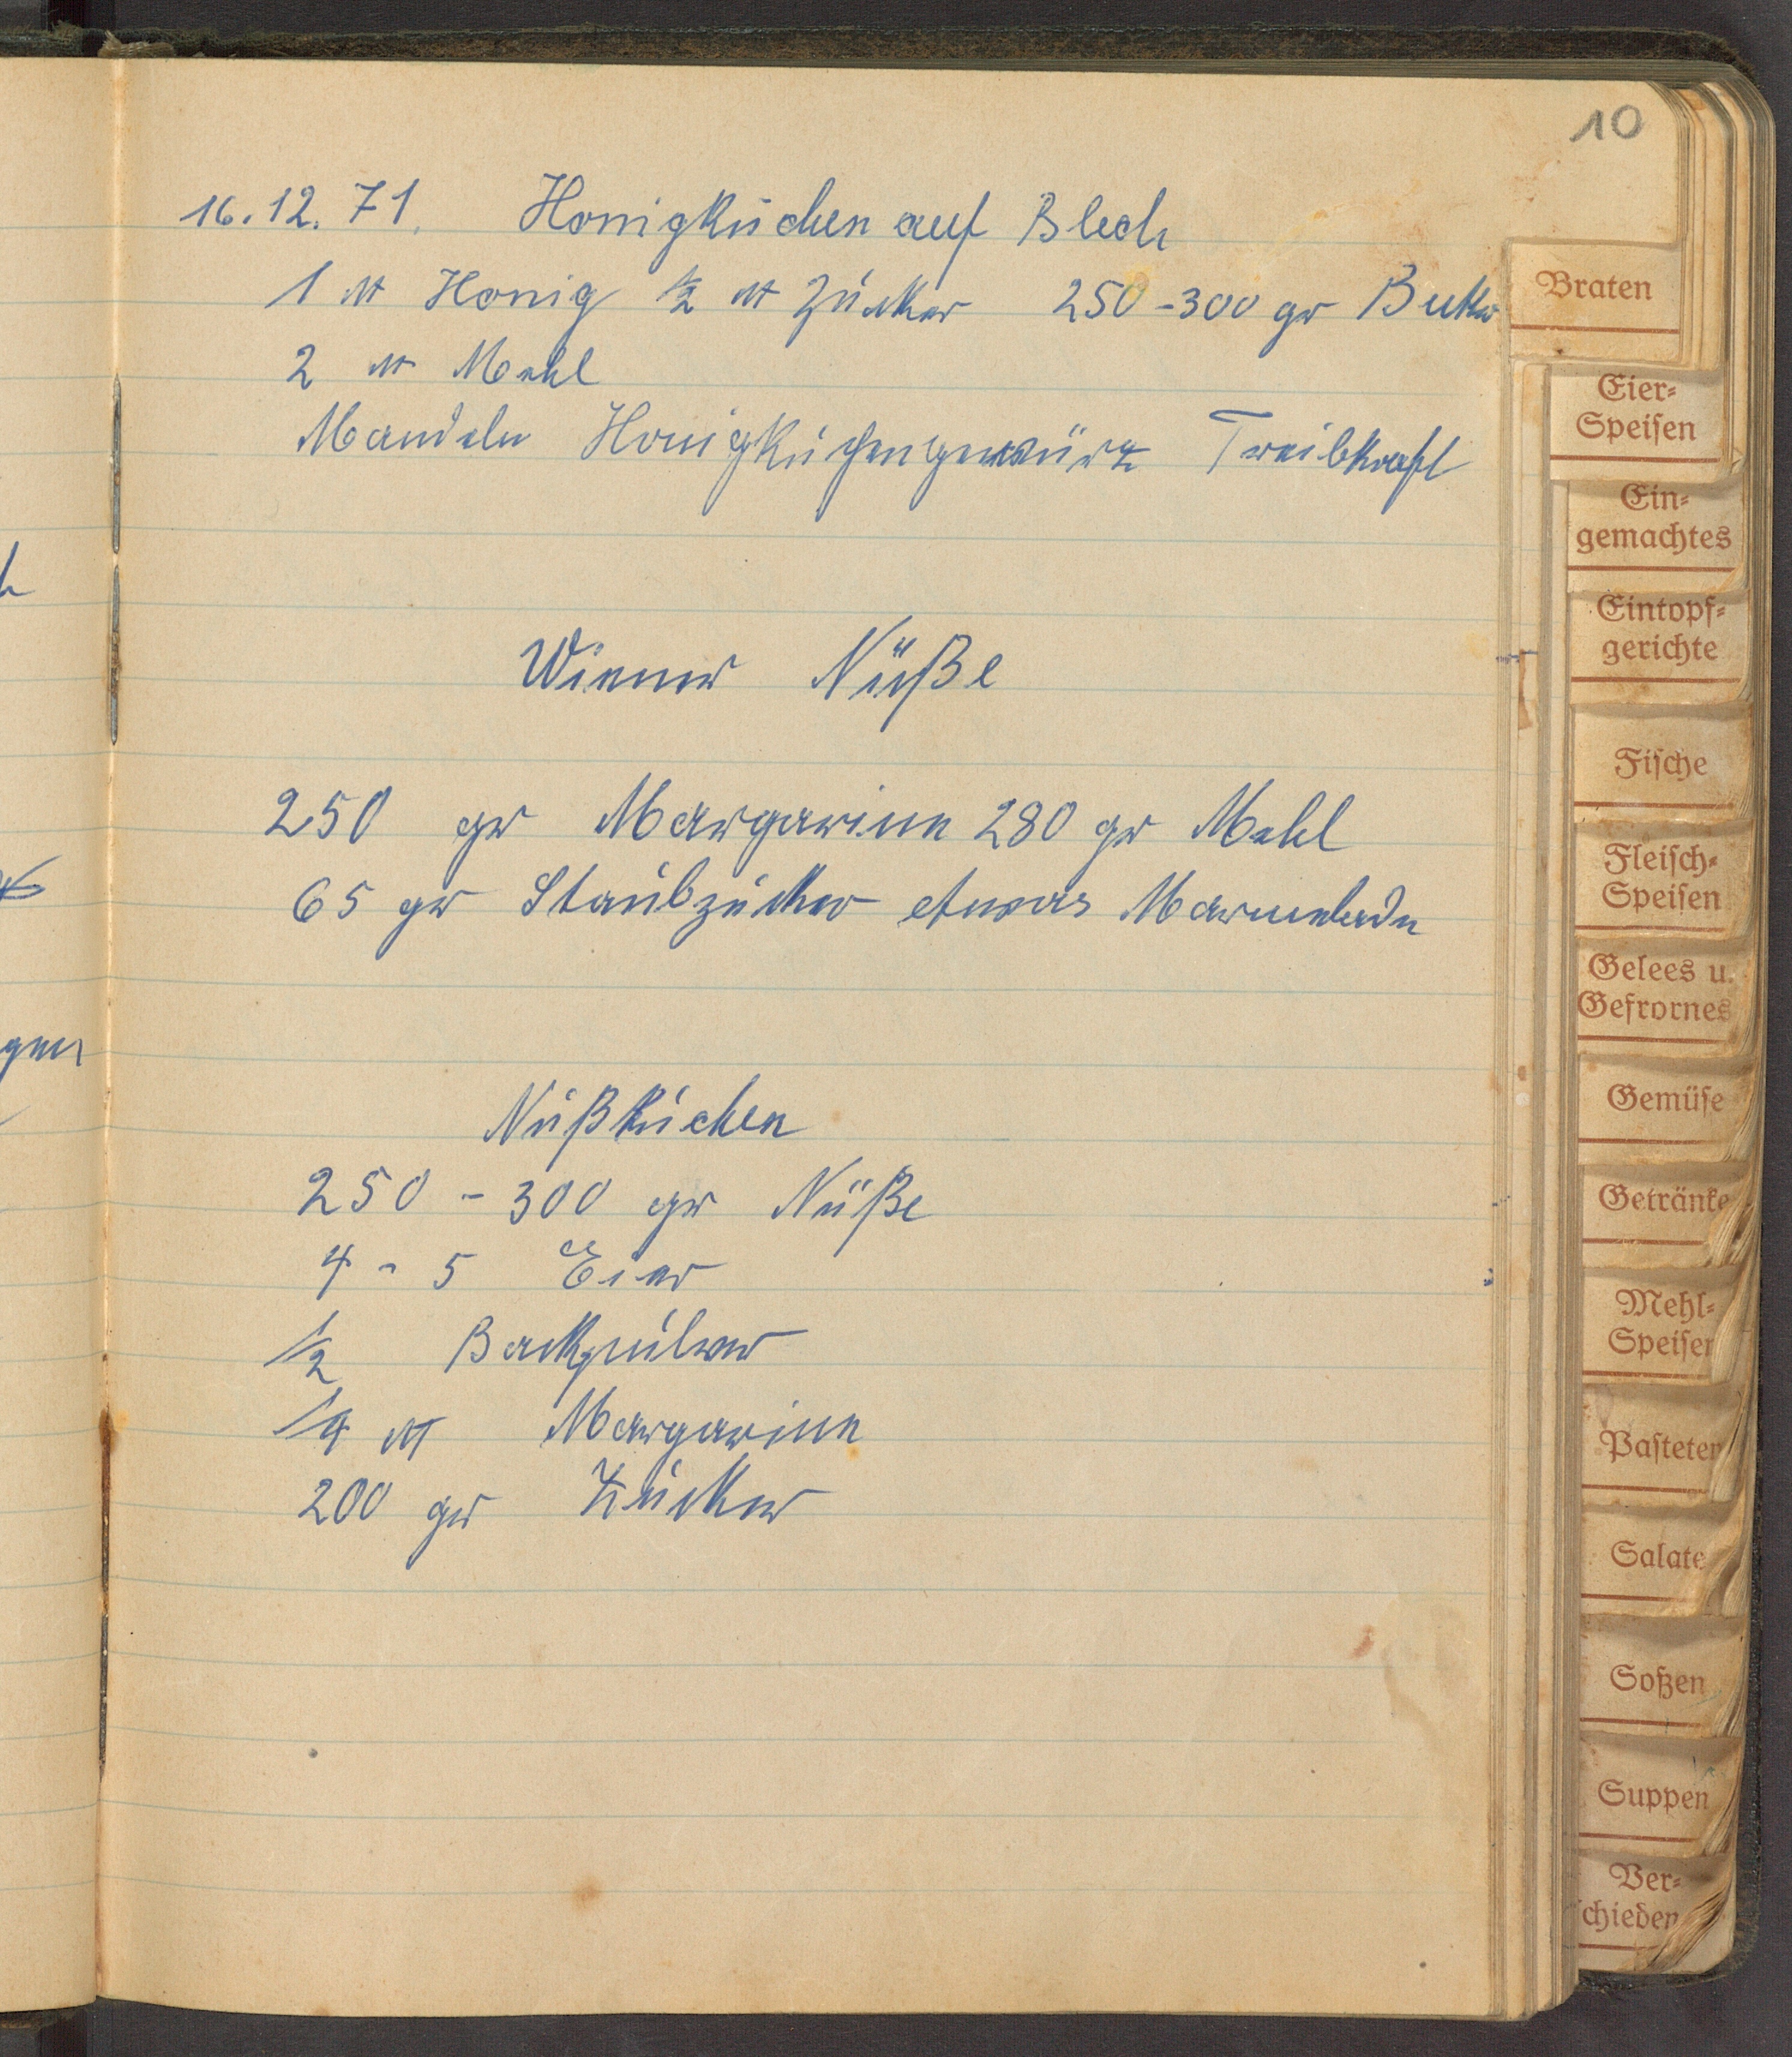 10
16.12.71. Honigkuchen auf Blech
1 ℔ Honig ½ ℔ Zucker 250-300 gr Butter
2 ℔ Mehl
Mandeln Honigkuchengewürz Treibkraft
Wiener Nüße
250 gr Margarine 280 gr Mehl
65 gr Staubzucker etwas Marmelade
Nußkuchen
250 - 300 gr Nüße
4 - 5 Eier
½ Backpulver
¼ ℔ Margarine
200 gr Zucker
Braten
Eier-
Speisen
Ein-
gemachtes
Eintopf-
gerichte
Fische
Fleisch-
Speisen
Gelees u.
Gefrornes
Gemüse
Getränke
Mehl-
Speisen
Pasteten
Salate
Soßen
Suppen
Ver-
schieden